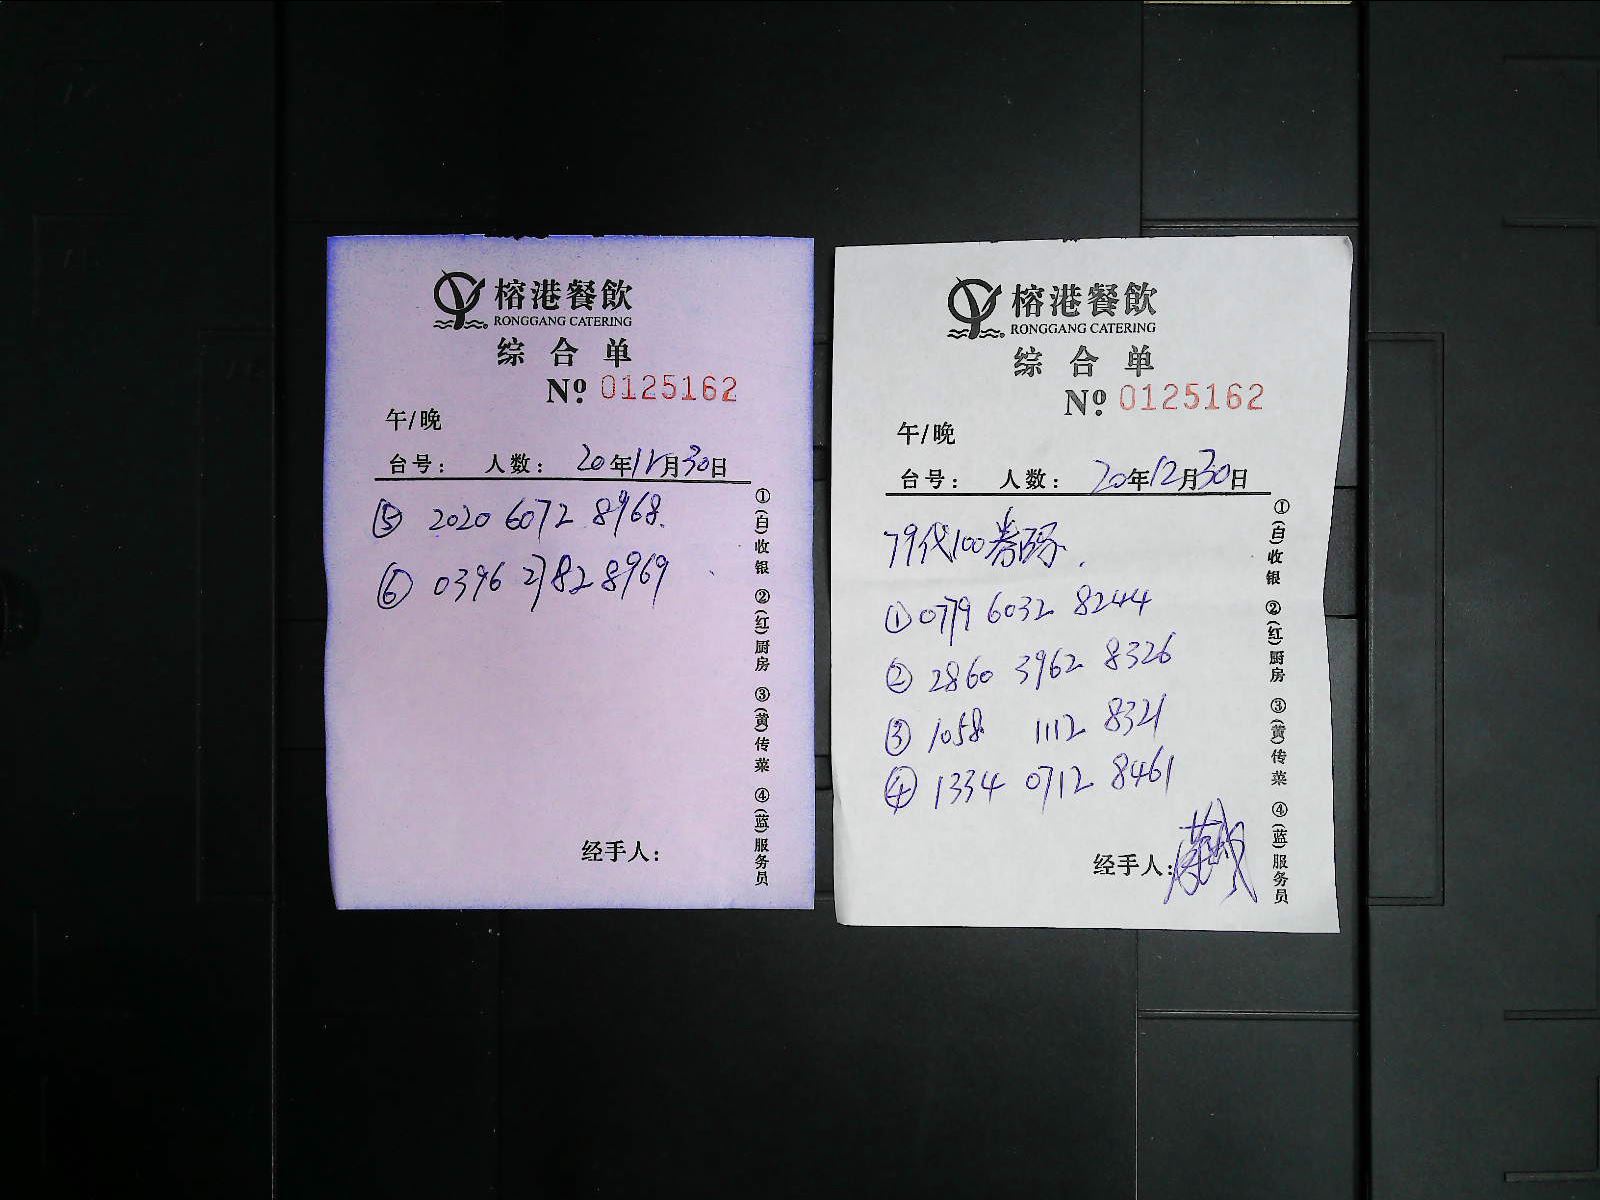 榕港餐飲
RONGGANG CATERING
综合单
Nº 0125162
午/晚
台号： 人数： 20年12月30日
⑤ 2020 6072 8968.
⑥ 0396 2782 8969
经手人：
①(白)收银 ②(红)厨房 ③(黄)传菜 ④(蓝)服务员
榕港餐飲
RONGGANG CATERING
综合单
Nº 0125162
午/晚
台号： 人数： 20年12月30日
79代100券码.
① 0779 6032 8244
② 2860 3962 8326
③ 1058 1112 8321
④ 1334 0712 8461
经手人：
①(白)收银 ②(红)厨房 ③(黄)传菜 ④(蓝)服务员